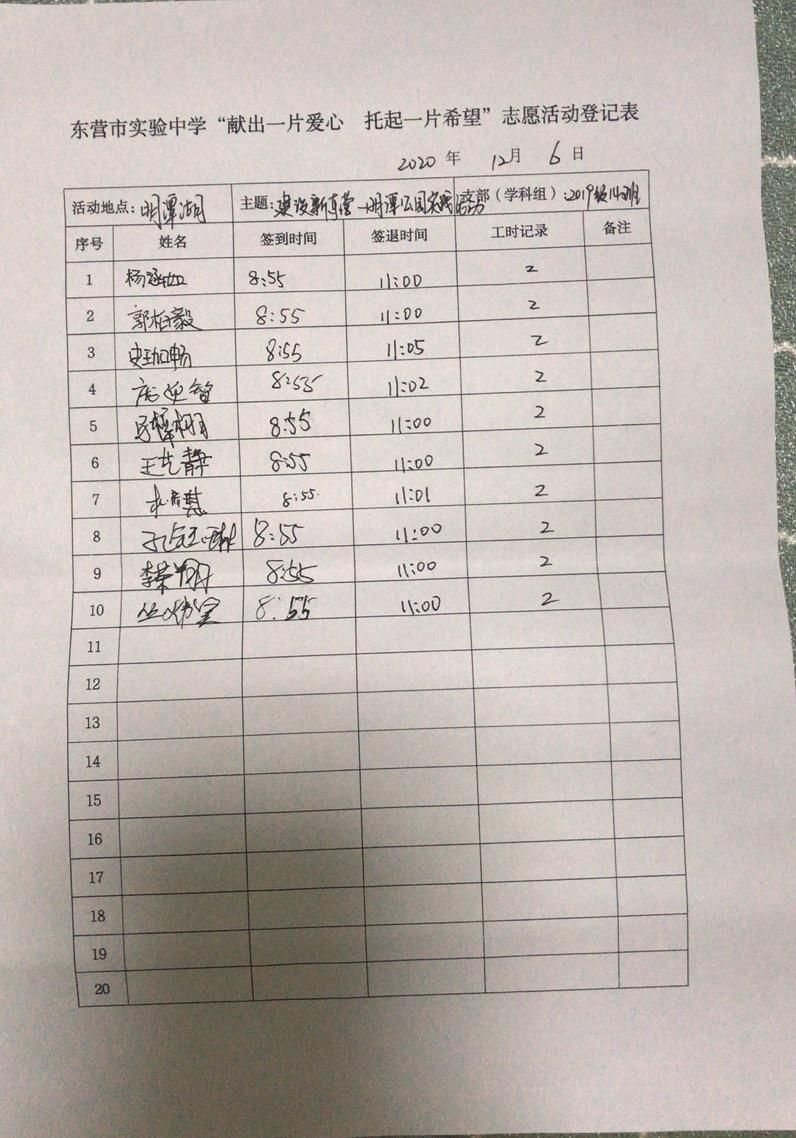 东营市实验中学“献出一片爱心 托起一片希望”志愿活动登记表
2020 年 12月 6 日
活动地点：明潭湖 主题：建设新东营—明潭公园 活动 支部（学科组）：2019级14班
序号 姓名 签到时间 签退时间 工时记录 备注
1 杨 8:55 11:00 2
2 郭柏毅 8:55 11:00 2
3 史珈畅 8:55 11:05 2
4 8:55 11:02 2
5 8:55 11:00 2
6 王艺静 8:55 11:00 2
7 8:55 11:01 2
8 8:55 11:00 2
9 李荣翔 8:55 11:00 2
10 8:55 11:00 2
11
12
13
14
15
16
17
18
19
20